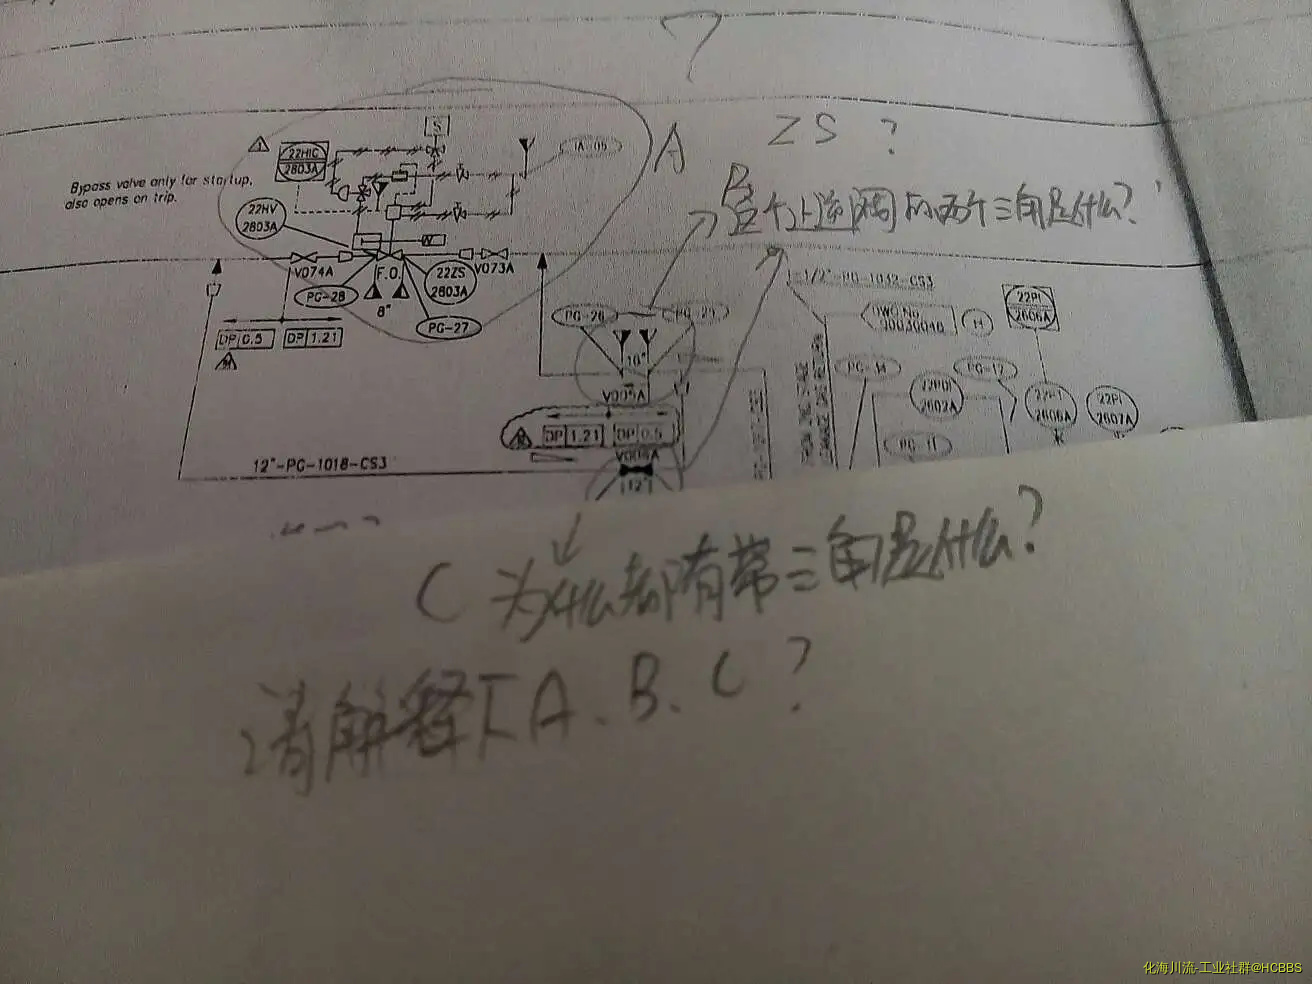 7
S
A
ZS ?
1
22HIC
2803A
IA-05
Bypass valve only for startup,
also opens on trip.
22HV
2803A
B
个止逆阀的两个三角是什么?
V074A
F.O.
22ZS
2803A
V073A
PG-28
8"
PG-27
DP 0.5
DP 1.21
1/2"-PG-1042-CS3
DWG.No.
H
22PI
2606A
PG-26
10"
V005A
PG-34
PG-12
22PDI
2602A
2606A
22PI
2607A
DP 1.21
DP 0.5
PG-11
12"-PG-1018-CS3
12"
C 为什么都有带三角是什么?
请解释下A、B、C?
化海川流-工业社群@HCBBS